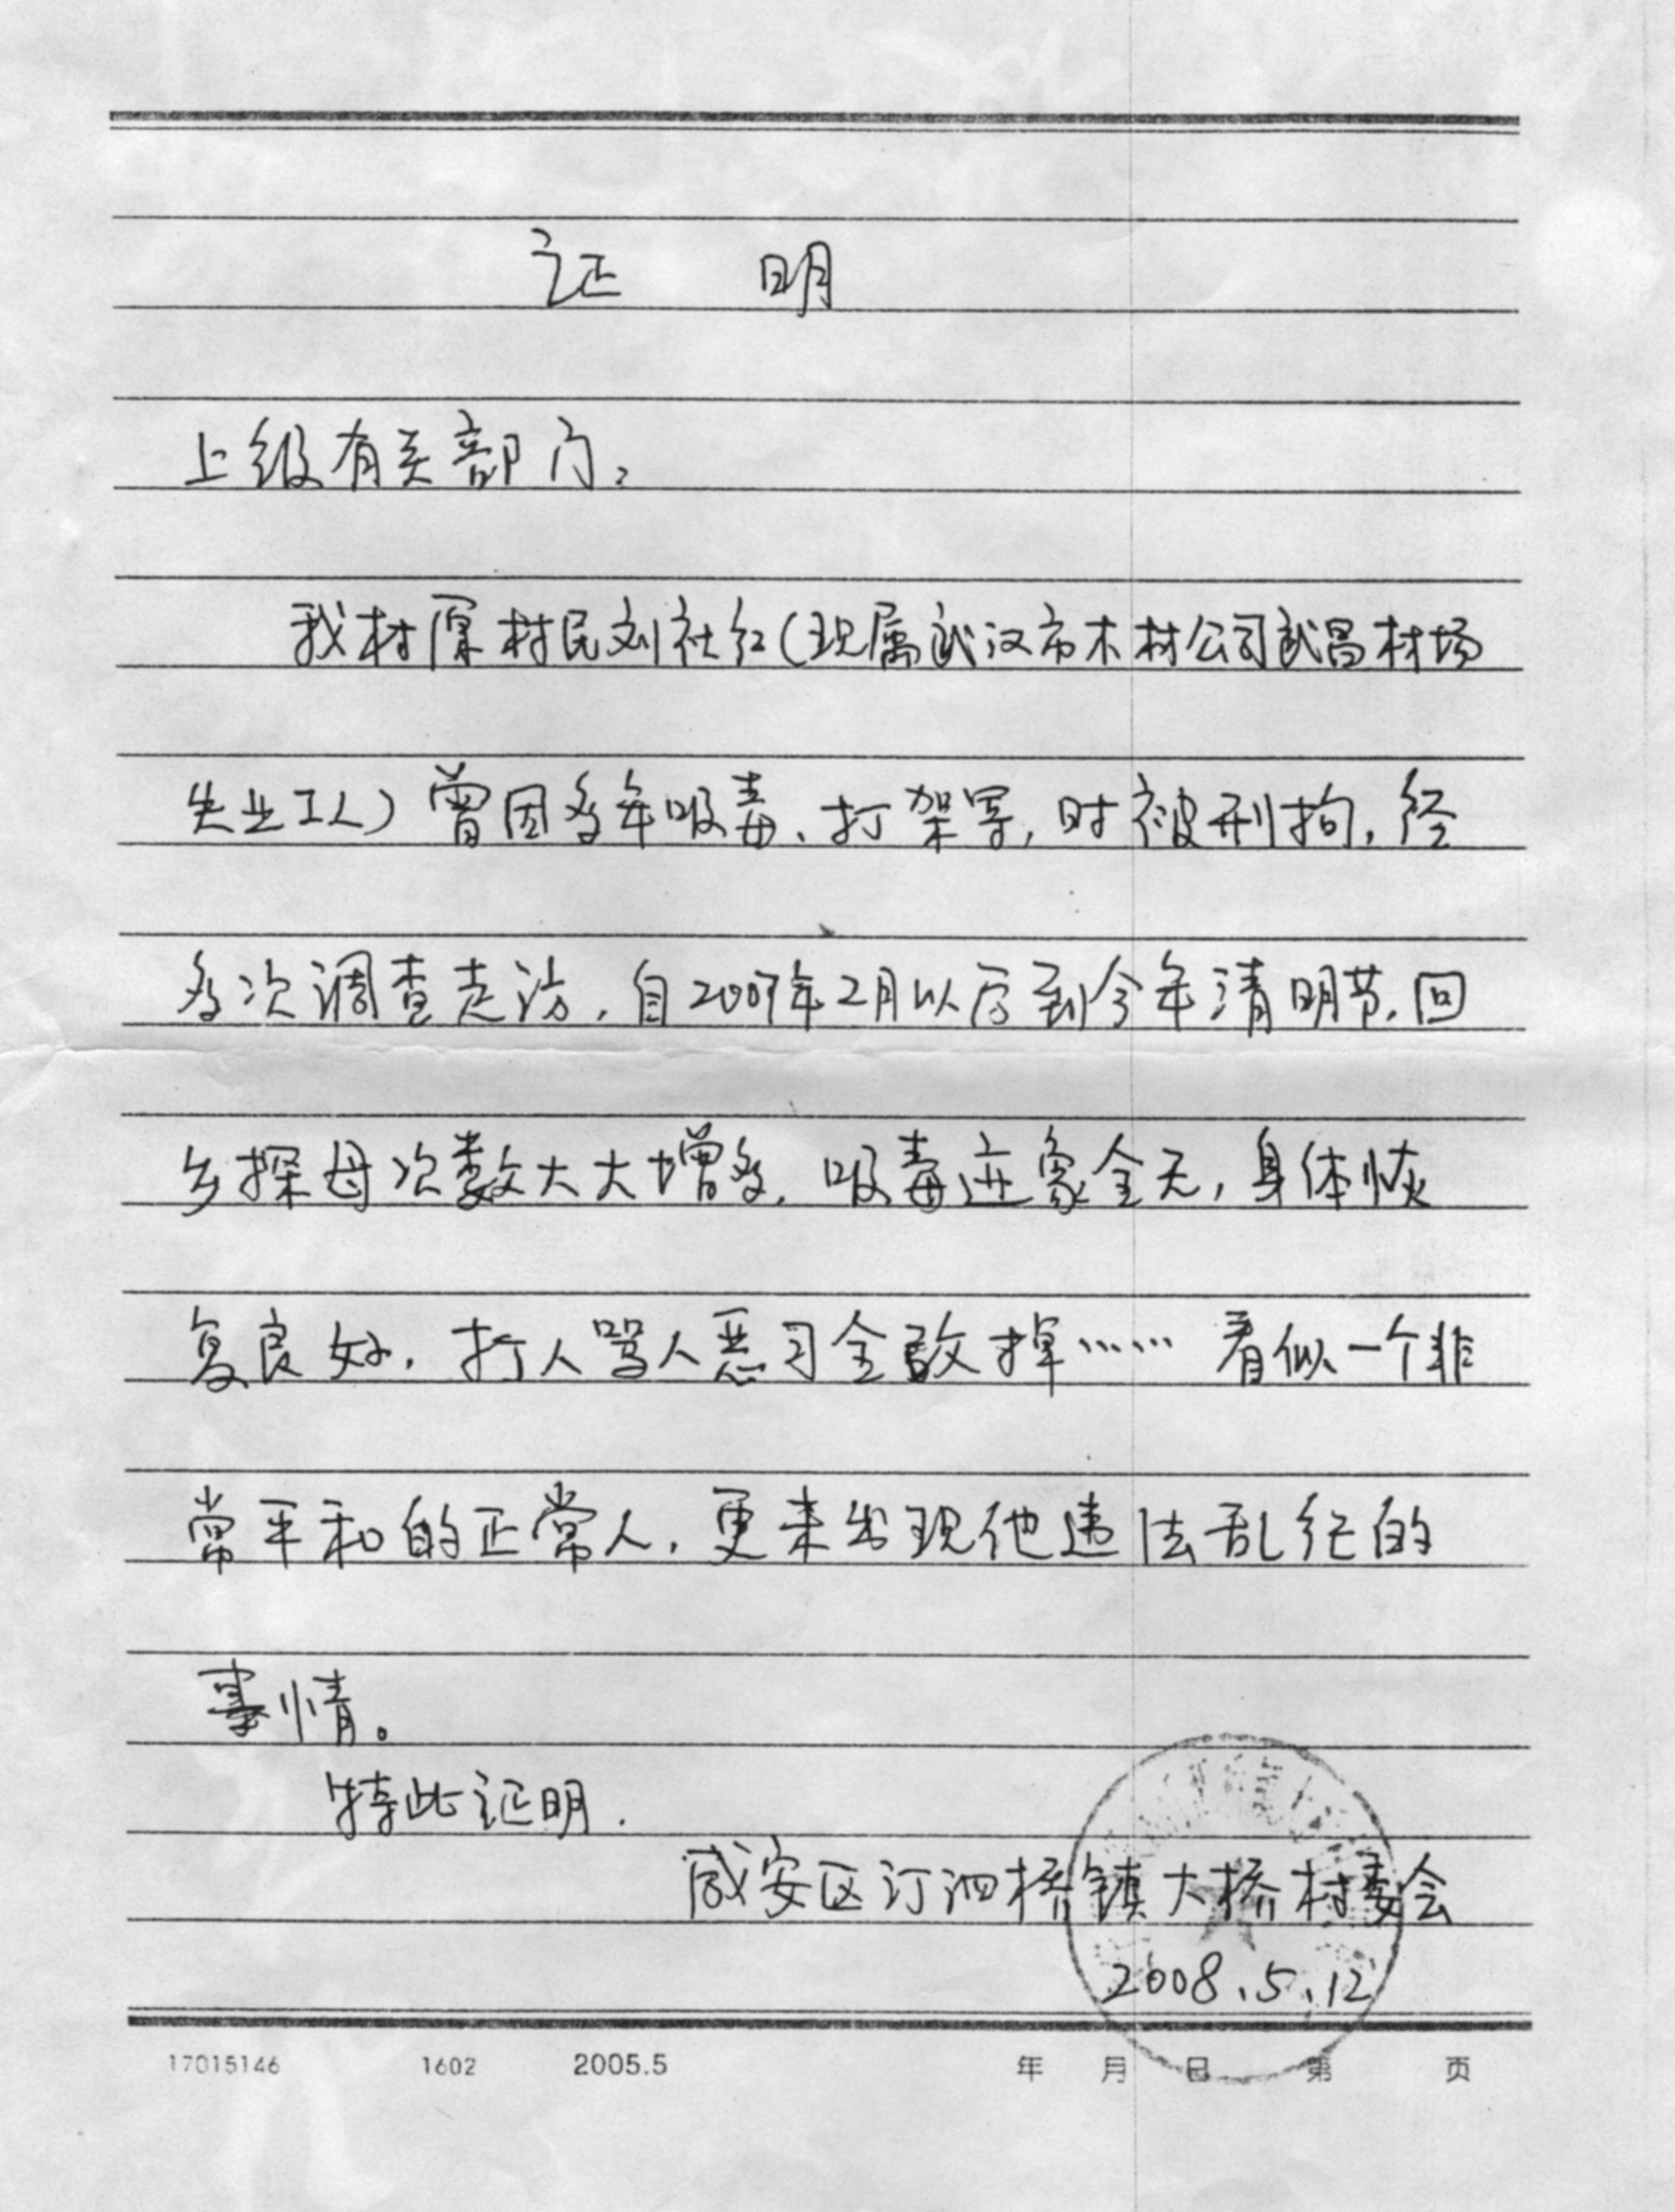 证 明
上级有关部门：
我村原村民刘社红（现属武汉市木材公司武昌材场
失业工人）曾因多年吸毒、打架等，时被刑拘，经
多次调查走访，自2007年2月以后到今年清明节，回
乡探母次数大大增多，吸毒迹象全无，身体恢
复良好，打人骂人恶习全改掉……看似一个非
常平和的正常人，更未出现他违法乱纪的
事情。
特此证明．
咸安区汀泗桥镇大桥村委会
2008.5.12
17015146 1602 2005.5 年 月 日 第 页